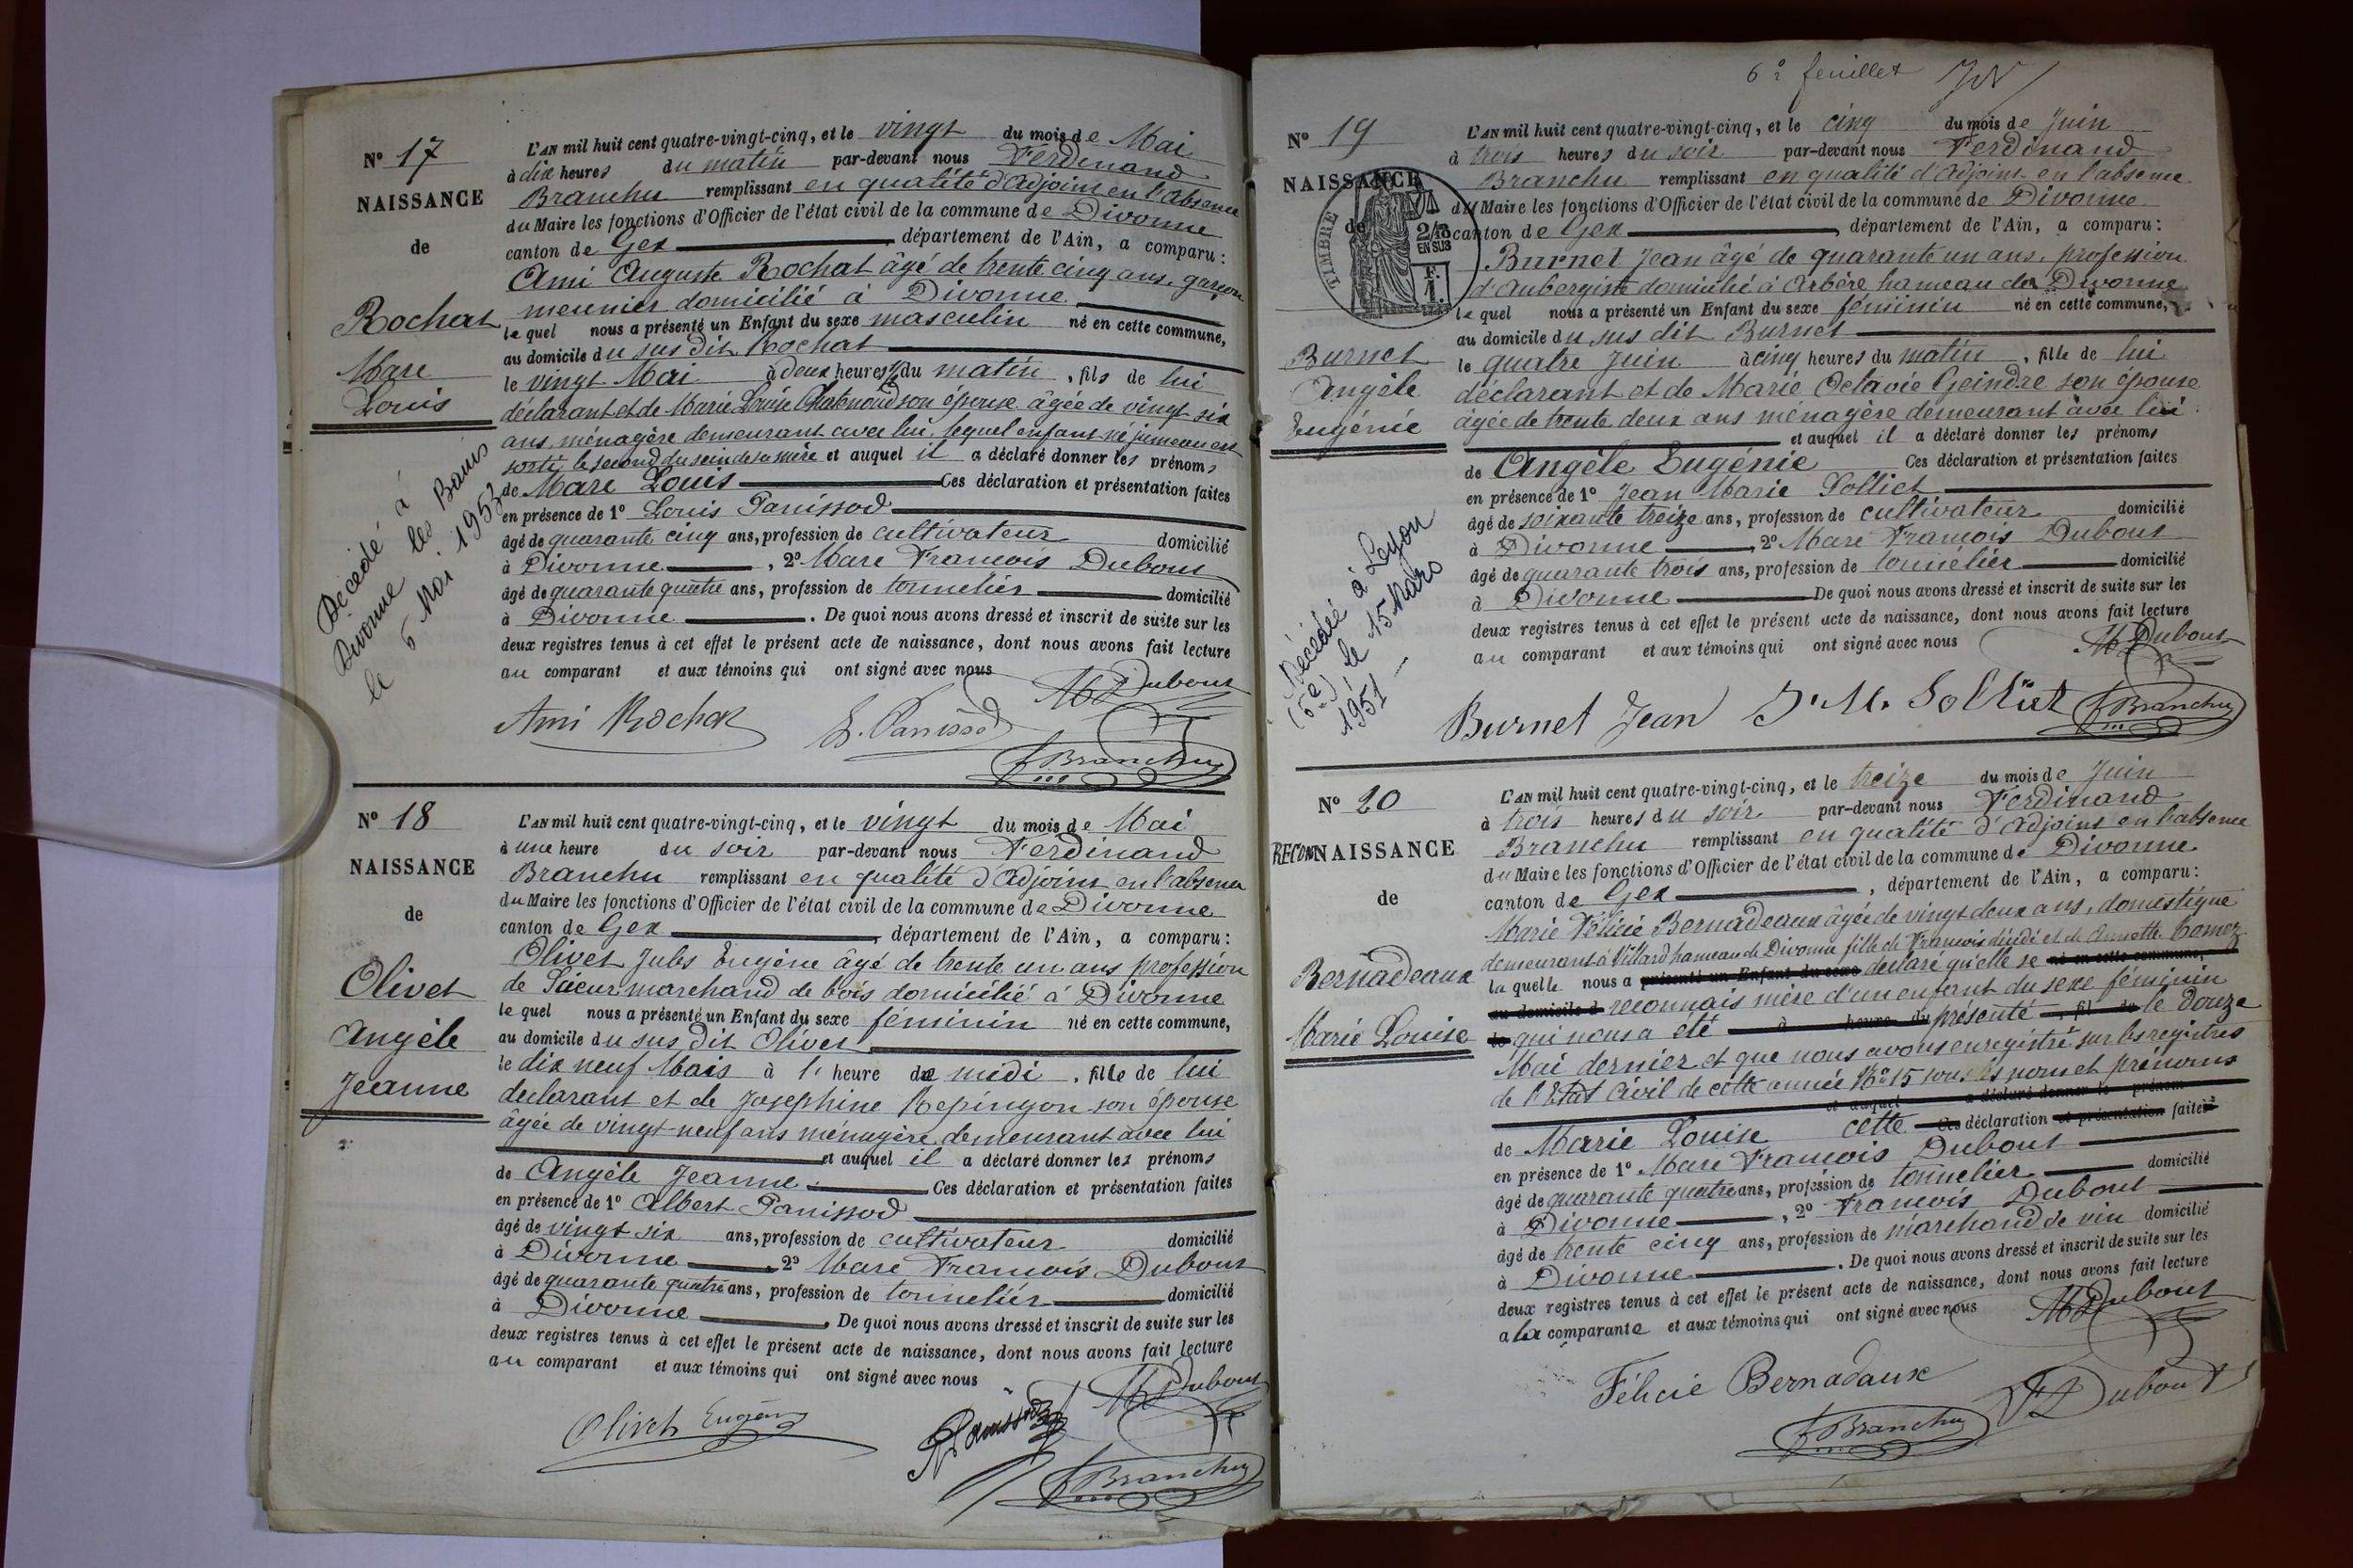 N° 17
NAISSANCE
de
Rochat
Marc
Louis
Décédé à
Divonne les Bains
le 5 Mai 1953
L'AN mil huit cent quatre-vingt-cinq, et le vingt du mois de Mai
à dix heures du matin par-devant nous Ferdinand
Branchu remplissant en qualité d'Adjoint en l'absence
du Maire les fonctions d'Officier de l'état civil de la commune de Divonne
canton de Gex département de l'Ain, a comparu :
Ami Auguste Rochat âgé de trente cinq ans, garçon
meunier domicilié à Divonne
le quel nous a présenté un Enfant du sexe masculin né en cette commune,
au domicile du sus dit Rochat
le vingt Mai à deux heures ½ du matin, fils de lui
déclarant et de Marie Louise son épouse âgée de vingt six
ans ménagère demeurant avec lui, lequel enfant né jumeau est
sorti le second du sein de sa mère et auquel il a déclaré donner les prénoms
de Marc Louis Ces déclaration et présentation faites
en présence de 1° Louis Panissod
âgé de quarante cinq ans, profession de cultivateur domicilié
à Divonne, 2° Marc François Dubout
âgé de quarante quatre ans, profession de tonnelier domicilié
à Divonne. De quoi nous avons dressé et inscrit de suite sur les
deux registres tenus à cet effet le présent acte de naissance, dont nous avons fait lecture
au comparant et aux témoins qui ont signé avec nous
M Dubout
Ami Rochat L. Panissod
F Branchu
N° 18
NAISSANCE
de
Olivet
Angèle
Jeanne
L'AN mil huit cent quatre-vingt-cinq, et le vingt du mois de Mai
à une heure du soir par-devant nous Ferdinand
Branchu remplissant en qualité d'Adjoint en l'absence
du Maire les fonctions d'Officier de l'état civil de la commune de Divonne
canton de Gex, département de l'Ain, a comparu :
Olivet Jules Eugène âgé de trente un ans profession
de Scieur marchand de bois domicilié à Divonne
le quel nous a présenté un Enfant du sexe féminin né en cette commune,
au domicile du sus dit Olivet
le dix neuf Mais à 1 heure de midi, fille de lui
declarant et de Josephine Repingon son épouse
âgée de vingt-neuf ans ménagère demeurant avec lui
et auquel il a déclaré donner les prénoms
de Angèle Jeanne Ces déclaration et présentation faites
en présence de 1° Albert Panissod
âgé de vingt six ans, profession de cultivateur domicilié
à Divonne, 2° Marc François Dubout
âgé de quarante quatre ans, profession de tonnelier domicilié
à Divonne. De quoi nous avons dressé et inscrit de suite sur les
deux registres tenus à cet effet le présent acte de naissance, dont nous avons fait lecture
au comparant et aux témoins qui ont signé avec nous
M Dubout
Olivet Eugène Panissod
F Branchu
6e feuillet
N° 19
NAISSANCE
de
TIMBRE
2/10
EN SUS
Burnet
Angèle
Eugénie
Décédée à Lyon
(5e) le 15 Mars
1951 -
L'AN mil huit cent quatre-vingt-cinq, et le cinq du mois de Juin
à trois heures du soir par-devant nous Ferdinand
Branchu remplissant en qualité d'Adjoint en l'absence
du Maire les fonctions d'Officier de l'état civil de la commune de Divonne
canton de Gex, département de l'Ain, a comparu :
Burnet Jean âgé de quarante un ans, profession
d'Aubergiste domicilié à Arbère hameau de Divonne
le quel nous a présenté un Enfant du sexe féminin né en cette commune,
au domicile du sus dit Burnet
le quatre Juin à cinq heures du matin, fille de lui
déclarant et de Marie Octavie Geindre son épouse
âgée de trente deux ans ménagère demeurant avec lui
et auquel il a déclaré donner les prénoms
de Angèle Eugénie Ces déclaration et présentation faites
en présence de 1° Jean Marie Solliet
âgé de soixante treize ans, profession de cultivateur domicilié
à Divonne, 2° Marc François Dubout
âgé de quarante trois ans, profession de tonnelier domicilié
à Divonne De quoi nous avons dressé et inscrit de suite sur les
deux registres tenus à cet effet le présent acte de naissance, dont nous avons fait lecture
au comparant et aux témoins qui ont signé avec nous
M Dubout
Burnet Jean J. M. Solliet F Branchu
N° 20
RECONNAISSANCE
de
Bernadeaux
Marie Louise
L'AN mil huit cent quatre-vingt-cinq, et le treize du mois de Juin
à trois heures du soir par-devant nous Ferdinand
Branchu remplissant en qualité d'Adjoint en l'absence
du Maire les fonctions d'Officier de l'état civil de la commune de Divonne
canton de Gex, département de l'Ain, a comparu :
Marie Félicie Bernadeaux âgée de vingt deux ans, domestique
demeurant à Villard hameau de Divonne fille de François décédé et de Annette
la quelle nous a présenté un Enfant du sexe declaré qu'elle se né en cette commune,
au domicile d reconnais mère d'un enfant du sexe féminin
le qui nous a été à heure du présenté, fil de le douze
Mai dernier et que nous avons enregistré sur les registres
de l'Etat Civil de cette année N° 15 sous les noms et prénoms
et auquel a déclaré donner le prénom
de Marie Louise cette Ces déclaration et présentation faites
en présence de 1° Marc François Dubout
âgé de quarante quatre ans, profession de tonnelier domicilié
à Divonne, 2° François Dubout
âgé de trente cinq ans, profession de marchand de vin domicilié
à Divonne. De quoi nous avons dressé et inscrit de suite sur les
deux registres tenus à cet effet le présent acte de naissance, dont nous avons fait lecture
a la comparante et aux témoins qui ont signé avec nous
M Dubout
Félicie Bernadaux
F Dubout
F Branchu